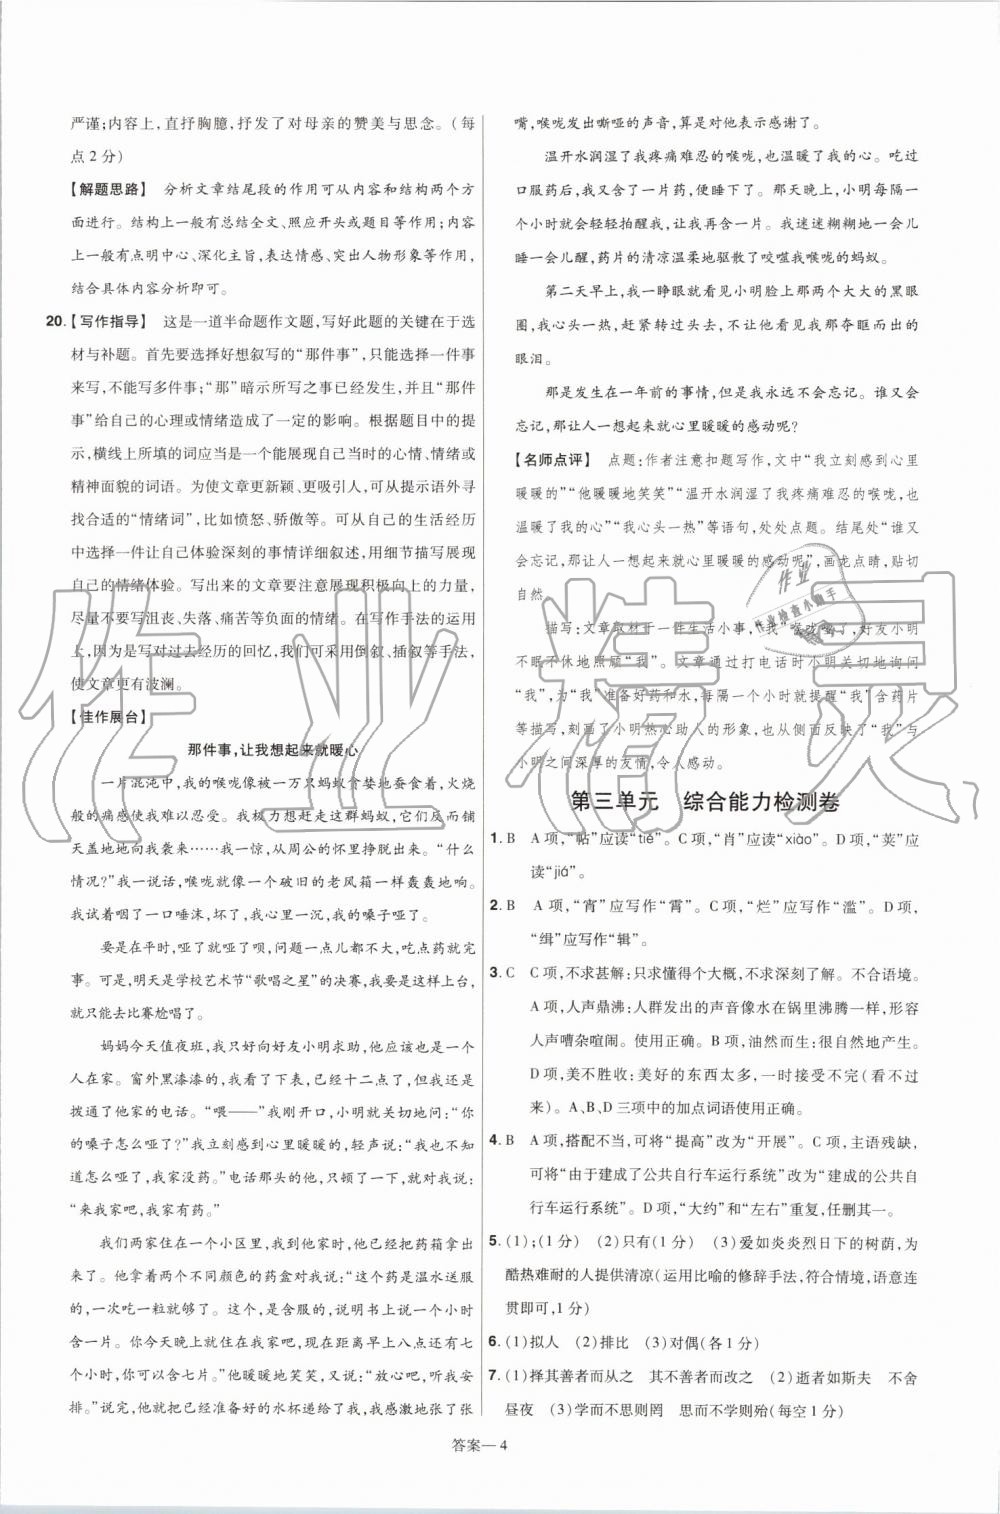 严谨;内容上,直抒胸臆,抒发了对母亲的赞美与思念。(每
点2分)
【解题思路】 分析文章结尾段的作用可从内容和结构两个方
面进行。结构上一般有总结全文、照应开头或题目等作用;内容
上一般有点明中心、深化主旨、表达情感、突出人物形象等作用,
结合具体内容分析即可。
20.【写作指导】 这是一道半命题作文题,写好此题的关键在于选
材与补题。首先要选择好想叙写的“那件事”,只能选择一件事
来写,不能写多件事;“那”暗示所写之事已经发生,并且“那件
事”给自己的心理或情绪造成了一定的影响。根据题目中的提
示,横线上所填的词应当是一个能展现自己当时的心情、情绪或
精神面貌的词语。为使文章更新颖、更吸引人,可从提示语外寻
找合适的“情绪词”,比如愤怒、骄傲等。可从自己的生活经历
中选择一件让自己体验深刻的事情详细叙述,用细节描写展现
自己的情绪体验。写出来的文章要注意展现积极向上的力量,
尽量不要写沮丧、失落、痛苦等负面的情绪。在写作手法的运用
上,因为是写对过去经历的回忆,我们可采用倒叙、插叙等手法,
使文章更有波澜。
【佳作展台】
那件事,让我想起来就暖心
一片混沌中,我的喉咙像被一万只蚂蚁贪婪地蚕食着,火烧
般的痛感使我难以忍受。我极力想赶走这群蚂蚁,它们反而铺
天盖地地向我袭来……我一惊,从周公的怀里挣脱出来。“什么
情况?”我一说话,喉咙就像一个破旧的老风箱一样轰轰地响。
我试着咽了一口唾沫,坏了,我心里一沉,我的嗓子哑了。
要是在平时,哑了就哑了呗,问题一点儿都不大,吃点药就完
事。可是,明天是学校艺术节“歌唱之星”的决赛,我这副样子,
就只能去比赛尬唱了。
妈妈今天值夜班,我只好向好友小明求助,他应该也是一个
人在家。窗外黑漆漆的,我看了下表,已经十二点了,我还是
拨通了他家的电话。“喂——”我刚开口,小明就关切地问:“你
的嗓子怎么哑了?”我立刻感到心里暖暖的,轻声说:“我也不知
道怎么哑了,我家没药。”电话那头的他,立刻对我说:
“来我家吧,我家有药。”
我们两家住在一个小区里,我到他家时,他已经把药箱拿出
来了。他指着两个不同颜色的药盒对我说:“这个药是温水送服
的,一次吃一粒就够了。这个,是含服的,说明书上说一个小时
含一片。你今天晚上就住在我家吧,现在距离早上八点还有七
个小时,你可以含七片。”他暖暖地笑笑,又说:“放心吧,听我安
排。”说完,他就把已经准备好的水杯递给了我,我感激地张了张
嘴,喉咙发出嘶哑的声音,算是对他表示感谢了。
温开水润湿了我疼痛难忍的喉咙,也温暖了我的心。吃过
口服药后,我又含了一片药,便睡下了。那天晚上,小明每隔一
个小时就会轻轻拍醒我,让我再含一片。我迷迷糊糊地一会儿
睡一会儿醒,药片的清凉温柔地驱散了咬噬我喉咙的蚂蚁。
第二天早上,我一睁眼就看见小明脸上那两个大大的黑眼
圈,我心头一热,赶紧转过头去,不让他看见我那夺眶而出的
眼泪。
那是发生在一年前的事情,但是我永远不会忘记。谁又会
忘记,那让人一想起来就心里暖暖的感动呢?
【名师点评】 点题:作者注意扣题写作,文中“我立刻感到心里
暖暖的”“他暖暖地笑笑”“温开水润湿了我疼痛难忍的喉咙,也
温暖了我的心”“我心头一热”等语句,处处点题。结尾处“谁又
会忘记,那让人一想起来就心里暖暖的感动呢”,画龙点睛,发人
自然。
描写:文章取材于一件生活小事,“我”喉咙哑了,好友小明
不眠不休地照顾“我”。文章通过打电话时小明关切地询问
“我”,为“我”准备好药和水,每隔一个小时就提醒“我”含药片
等描写,刻画了小明热心助人的形象,也从侧面反映了“我”与
小明之间深厚的友情,令人感动。
第三单元 综合能力检测卷
1. B A项,“帖”应读“tiě”。C项,“肖”应读“xiào”。D项,“荚”应
读“jiá”。
2. B A项,“宵”应写作“霄”。C项,“烂”应写作“滥”。D项,
“缉”应写作“辑”。
3. C C项,不求甚解:只求懂得个大概,不求深刻了解。不合语境。
A项,人声鼎沸:人群发出的声音像水在锅里沸腾一样,形容
人声嘈杂喧闹。使用正确。B项,油然而生:很自然地产生。
D项,美不胜收:美好的东西太多,一时看不过来(或接受不过
来)。A、B、D三项中的加点词语使用正确。
4. B A项,搭配不当,可将“提高”改为“开展”。C项,主语残缺,
可将“由于建成了公共自行车运行系统”改为“建成的公共自
行车运行系统”。D项,“大约”和“左右”重复,任删其一。
5. (1);(1分) (2)只有(1分) (3)爱如炎炎烈日下的树荫,为
酷热难耐的人提供清凉(运用比喻的修辞手法,符合情境,语意连
贯即可,1分)
6. (1)拟人 (2)排比 (3)对偶(各1分)
7. (1)择其善者而从之 其不善者而改之 (2)逝者如斯夫 不舍
昼夜 (3)学而不思则罔 思而不学则殆(每空1分)
答案—4
作业精灵
作业
作业检查小助手